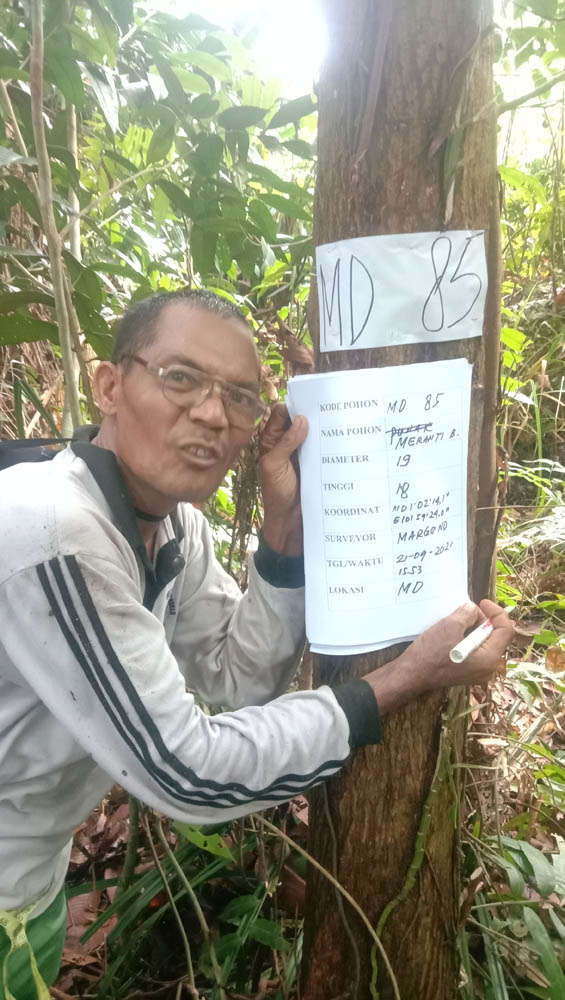 MD 85
KODE POHON MD 85
NAMA POHON MERANTI B.
DIAMETER 19
TINGGI 18
KOORDINAT
E 101°59'29.0"
SURVEYOR MARGONO
TGL/WAKTU 21-09-2021
15.53
LOKASI MD